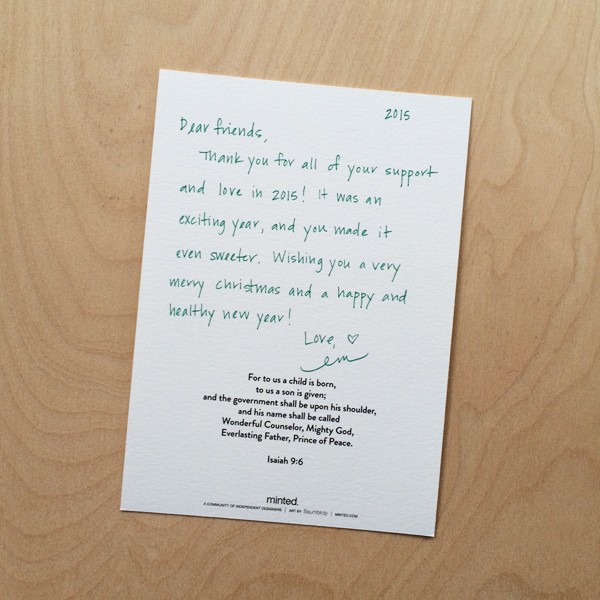 2015
Dear friends,
Thank you for all of your support
and love in 2015! It was an
exciting year, and you made it
even sweeter. Wishing you a very
merry christmas and a happy and
healthy new year!
Love, ♡
em
For to us a child is born,
to us a son is given;
and the government shall be upon his shoulder,
and his name shall be called
Wonderful Counselor, Mighty God,
Everlasting Father, Prince of Peace.
Isaiah 9:6
minted.
A COMMUNITY OF INDEPENDENT DESIGNERS | ART BY Baumbirdy | MINTED.COM